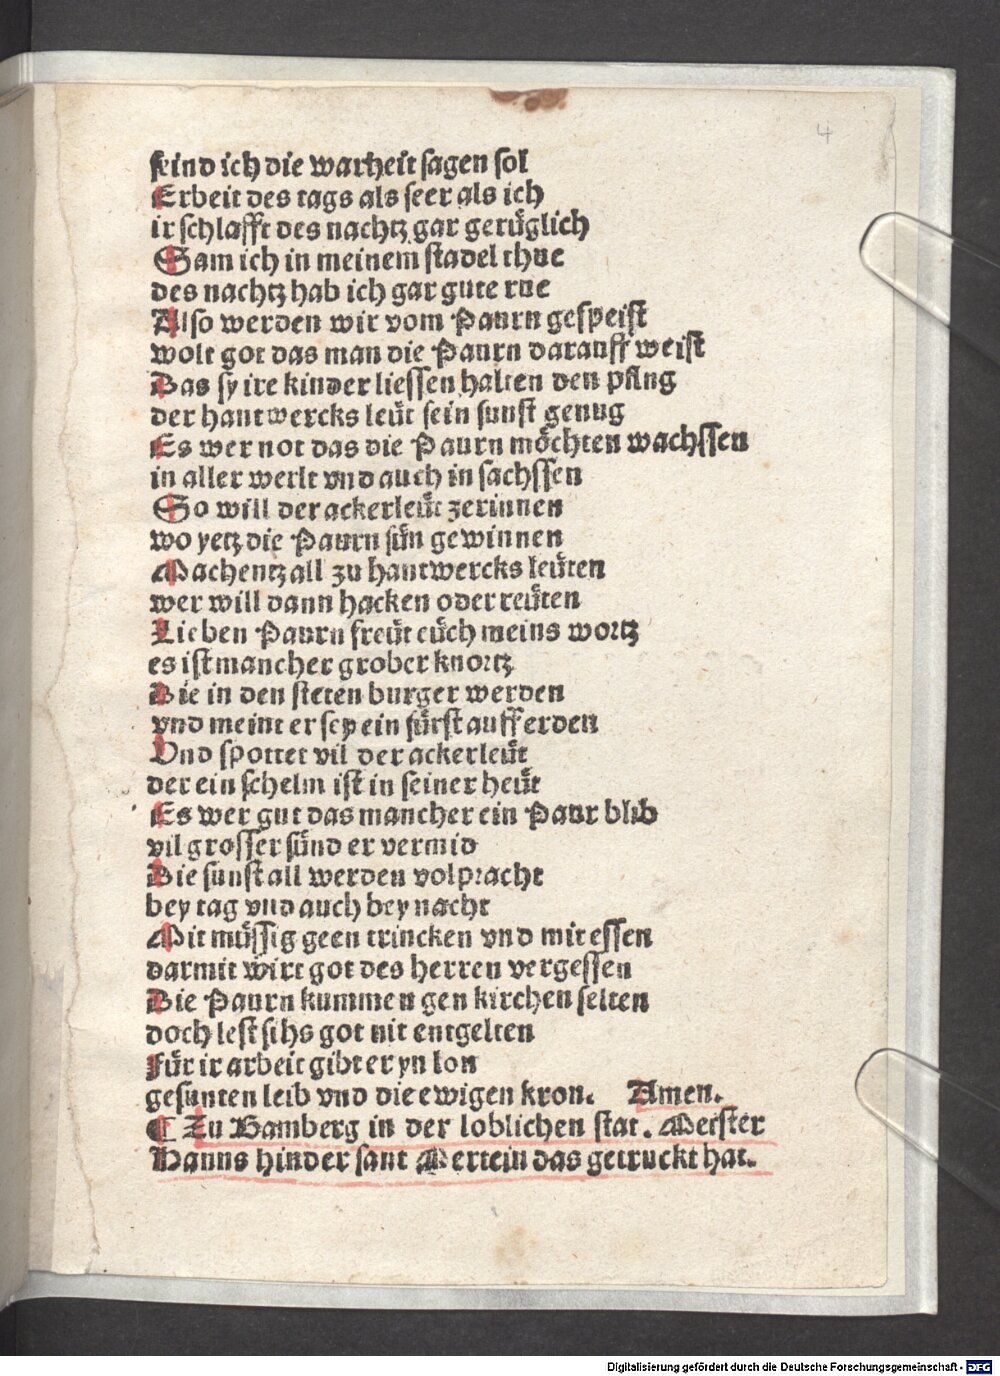 4
seind ich die warheit sagen sol
Erbeit des tags als seer als ich
ir schlafft des nachtz gar gerüglich
Sam ich in meinem stadel thue
des nachtz hab ich gar gute rue
Also werden wir vom Paurn gespeist
wolt got das man die Paurn darauff weist
Das sy ire kinder liessen halten den pflug
der hantwercks leüt sein sunst genug
Es wer not das die Paurn möchten wachssen
in aller werlt vnd auch in sachssen
So will der ackerleüt zerinnen
wo yetz die Paurn sün gewinnen
Machentz all zu hantwercks leüten
wer will dann hacken oder reüten
Lieben Paurn freüt eüch meins wortz
es ist mancher grober knortz
Die in den steten burger werden
vnd meint er sey ein fürst auff erden
Vnd spottet vil der ackerleüt
der ein schelm ist in seiner heüt
Es wer gut das mancher ein Paur blib
vil grosser sünd er vermid
Die sunst all werden volpracht
bey tag vnd auch bey nacht
Mit müssig geen trincken vnd mit essen
darmit wirt got des herren vergessen
Die Paurn kummen gen kirchen selten
doch lest sihs got nit entgelten
Für ir arbeit gibt er yn lon
gesunten leib vnd die ewigen kron. Amen.
¶ Zu Bamberg in der loblichen stat. Meister
Hanns hinder sant Mertein das getruckt hat.
Digitalisierung gefördert durch die Deutsche Forschungsgemeinschaft - DFG